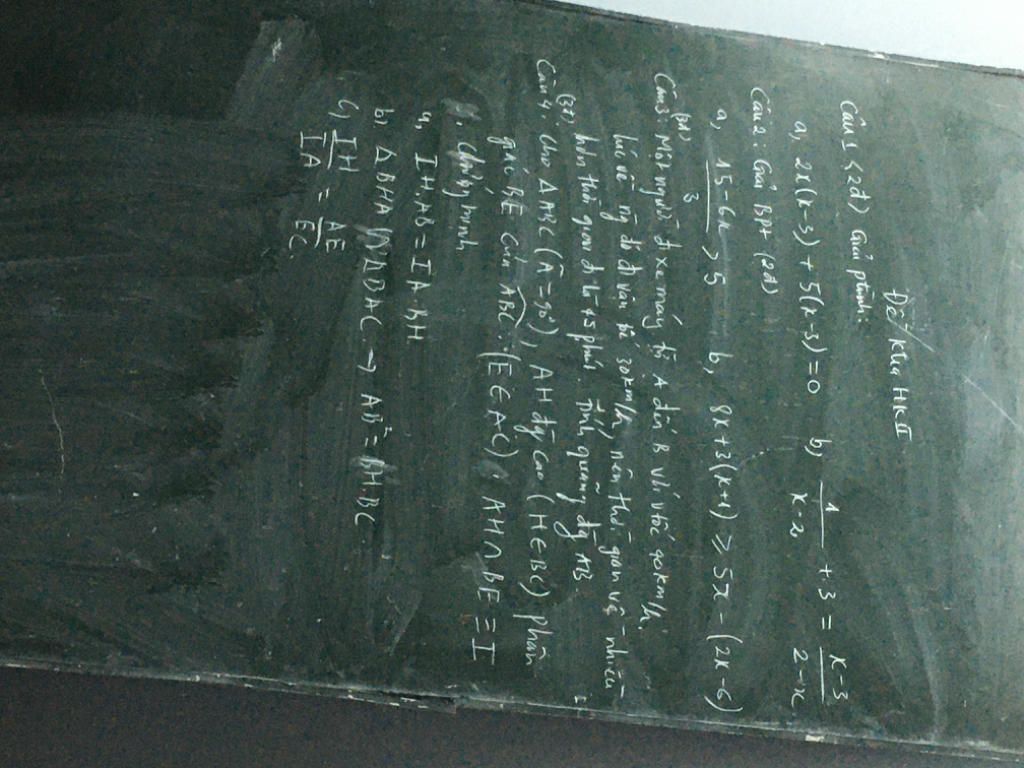 Đề Kthi HKII
Câu 1 (2đ) Giải ptrình:
a, 2x(x-3) + 5(x-3) = 0 b, 1/(x-2) + 3 = (x-3)/(2-x)
Câu 2: Giải BPt (2đ)
a, (15-6x)/3 > 5 b, 8x+3(x+1) ≥ 5x - (2x-6)
Câu 3: Một người đi xe máy từ A đến B với vtốc 40km/h.
(3đ) lúc về ng đó đi vận tốc 30km/h, nên thời gian về nhiều
hơn thời gian đi là 45 phút. Tính quãng đg AB.
Câu 4, Cho ΔABC (Â=90°), AH đg cao (H∈BC) phân
(3đ) giác BE của ABC. (E∈AC), AH∩BE ≡ I
Chứng minh
a, IH.AB = IA.BH
b, ΔBHA ∽ ΔBAC. → AB² = BH.BC.
c, IH/IA = AE/EC.